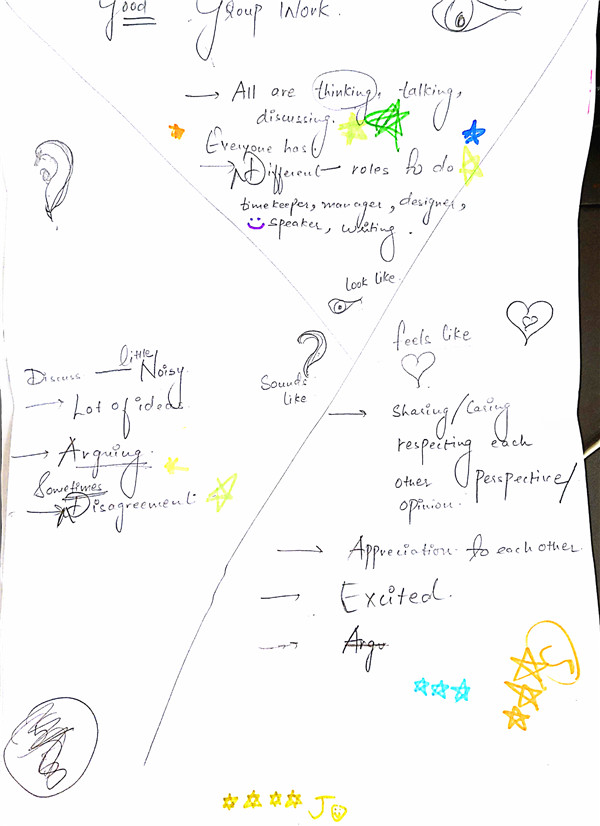 Good Group Work.
→ All are thinking, talking,
discussing.
Everyone has
→ Different roles to do
timekeeper, manager, designer,
speaker, writing.
look like
Sounds
like
feels like
Discuss — little Noisy.
→ Lot of ideas
→ Arguing.
Sometimes
→ Disagreement.
→ Sharing/Caring
respecting each
other perspective/
opinion.
→ Appreciation to each other.
→ Excited.
→ Argu
J
J